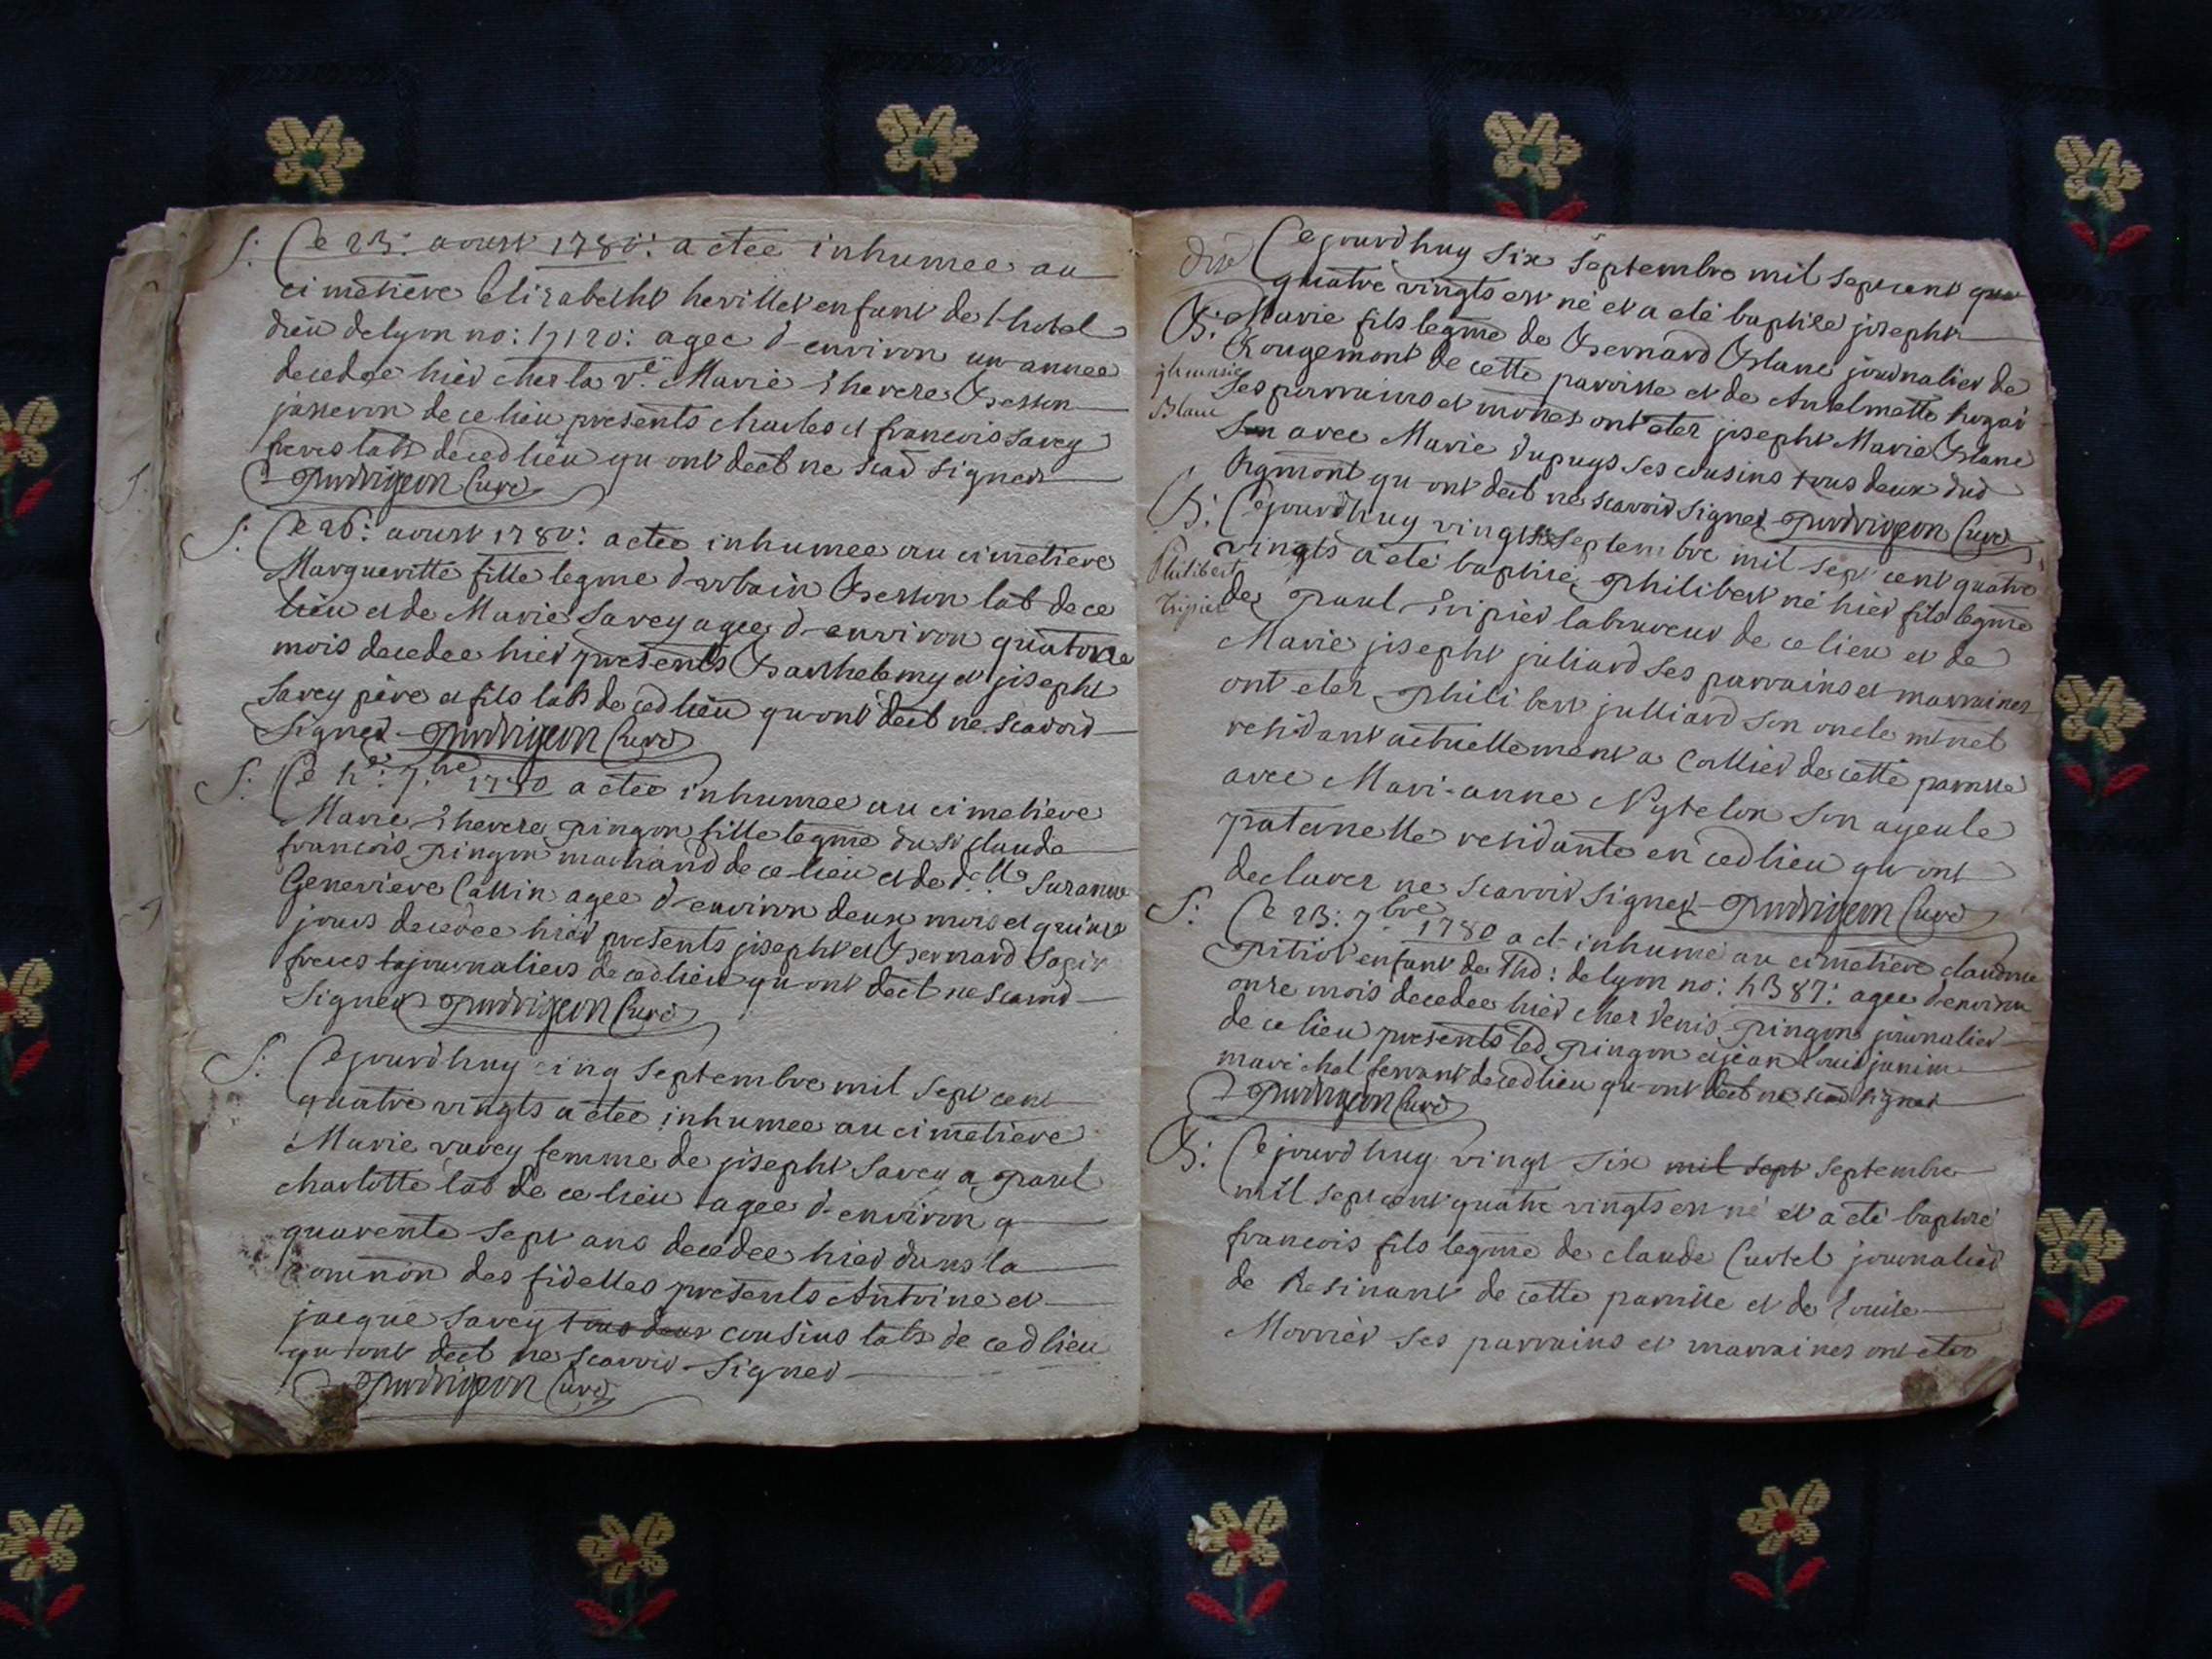 S: Ce 23: aoust 1780: a etee inhumee au
cimetiere Elizabeth hevillet enfant de l hotel
dieu de lyon no: 17120: agee d environ un annee
decedee hier chez la ve. Marie therese Besson
jasseron de ce lieu presents charles et francois Savey
freres labs decedlieu qu ont declt ne scav signer
Curé
S: Ce 26: aoust 1780: a etee inhumee au cimetiere
Margueritte fille legme d urbain Besson lab de ce
lieu et de Marie Savey agee d environ quatorze
mois decedee hier presents Barthelemy et joseph
Savey père et fils labs de cedlieu qu ont declt ne scavoir
Signer Curé
S: Ce 7.bre 1780 a etee inhumee au cimetiere
Marie therese pingon fille legme du sr claude
francois pingon marchand de ce lieu et de dlle Suzanne
Genevieve Callin agee d environ deux mois et quinze
jours decedee hier presents joseph et Bernard
freres journaliers de cedlieu qu ont declt ne scavoir
Signer Curé
S: Cejourdhuy cinq Septembre mil Sept cent
quatre vingts a etee inhumee au cimetiere
Marie varey femme de joseph Savey a paul
charlotte lab de ce lieu agee d environ q
quarente Sept ans decedee hier dans la
comnon des fidelles presents Antoine et
jacque Savey tous deux cousins labs de cedlieu
qu ont declt ne scavoir Signer
Curé
Cejourdhuy Six Septembre mil Sept cent
quatre vingts est né et a eté baptisé joseph
B: Marie fils legme de Bernard Blanc journalier de
Rougemont de cette paroisse et de Antelmette
jh marie
Ses parrains et mrnes ont etez joseph Marie Blanc
Blanc
avec Marie dupuys Ses cousins tous deux dud
Rgmont qu ont declt ne scavoir signer Curé
B: Cejourdhuy vingt Septembre mil Sept cent quatre
vingts a eté baptisé philibert né hier fils legme
Philibert
de paul tripier laboureur de ce lieu et de
Tripier
Marie joseph juliard Ses parrains et marraines
ont etez philibert julliard Son oncle mrnel
residant actuellement a Corllier de cette paroisse
avec Mari-anne Nytelon Son ayeule
paternelle residante en cedlieu qu ont
declarer ne scavoir Signer Curé
S: Ce 23: 7.bre 1780 a et inhumé au cimetiere claudine
pitiot enfant de lhd: de lyon no: agee d environ
onze mois decedee hier chez denis pingon journalier
de ce lieu presents led pingon et jean louis junin
marechal ferrant de cedlieu qu ont declt ne scav signer
Curé
B: Cejourdhuy vingt Six mil sept Septembre
mil Sept cent quatre vingts est né et a eté baptisé
francois fils legme de claude Curtel journalier
de Resinant de cette paroisse et de Louise
Morrier Ses parrains et marraines ont etez